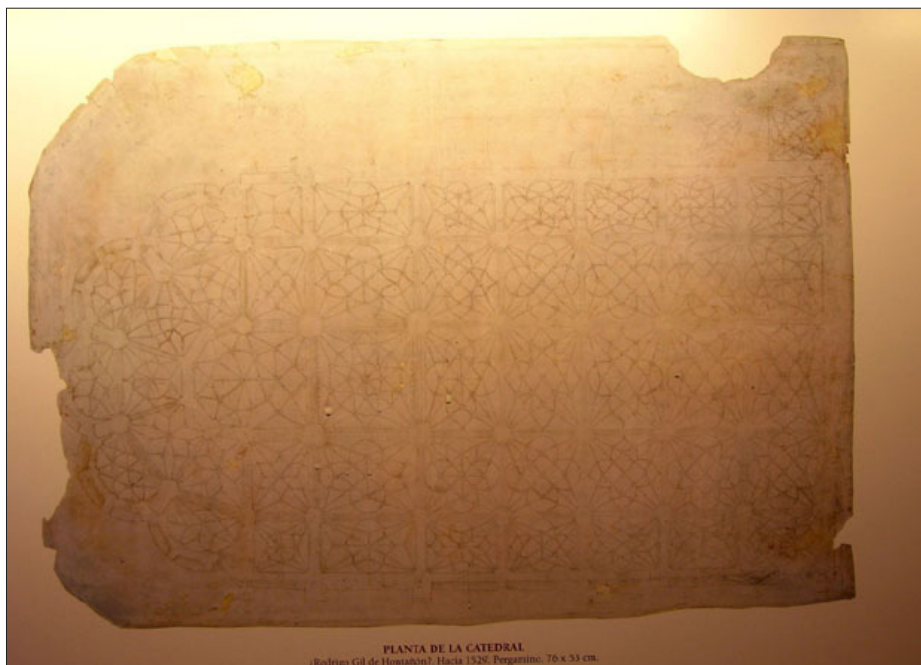 PLANTA DE LA CATEDRAL
¿Rodrigo Gil de Hontañón?. Hacia 1529. Pergamino. 76 x 53 cm.